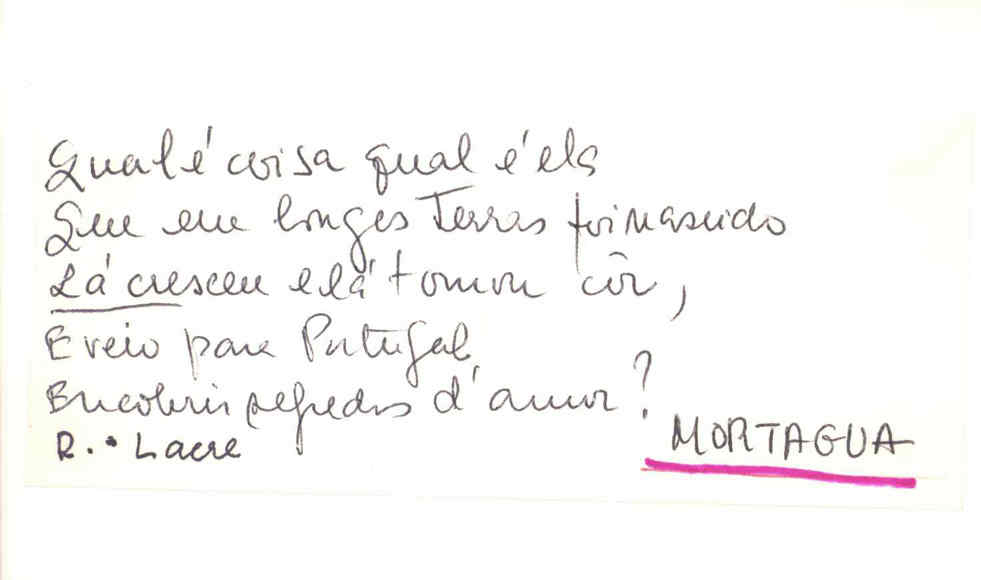 Qual é coisa qual é ela
Que em longes Terras foi nascido
Lá cresceu e lá tomou côr,
E veio para Portugal
Encobrir segredos d'amor?
R.: Lacre
MORTAGUA